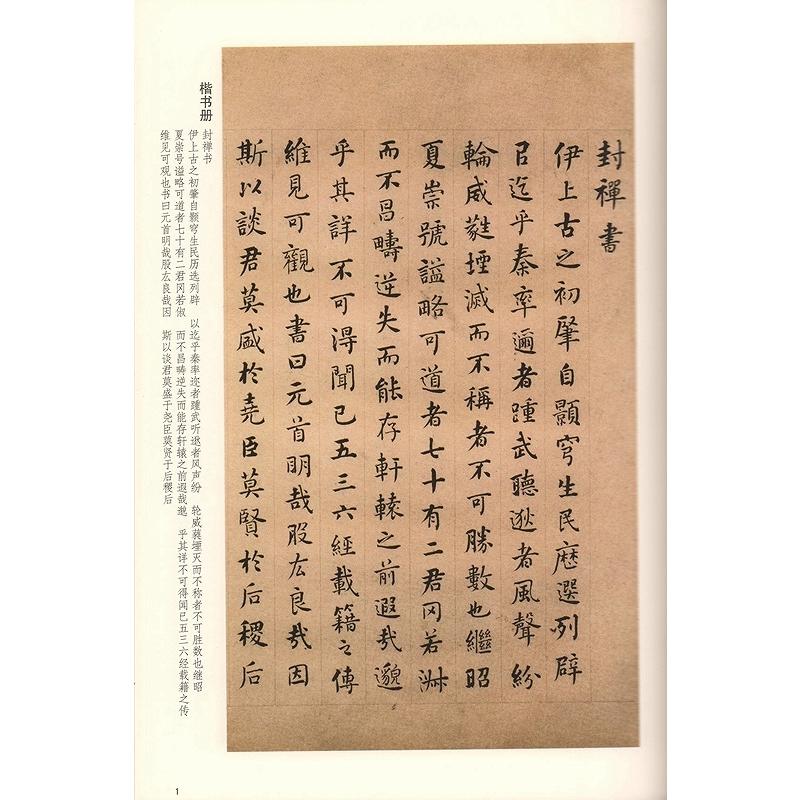 封禪書
伊上古之初肇自顥穹生民歷選列辟
以迄乎秦率邇者踵武聽逖者風聲紛
輪威蕤堙滅而不稱者不可勝數也繼昭
夏崇號謚略可道者七十有二君罔若淋
而不昌疇逆失而能存軒轅之前遐哉邈
乎其詳不可得聞已五三六經載籍之傳
維見可觀也書曰元首明哉股厷良哉因
斯以談君莫盛於堯臣莫賢於后稷后
楷书册
封禅书
伊上古之初肇自颢穹生民历选列辟 以迄乎秦率迩者踵武听逖者风声纷 轮威蕤堙灭而不称者不可胜数也继昭
夏崇号谥略可道者七十有二君冈若俶 而不昌畴逆失而能存轩辕之前遐哉邈 乎其详不可得闻已五三六经载籍之传
维见可观也书曰元首明哉股厷良哉因 斯以谈君莫盛于尧臣莫贤于后稷后
1